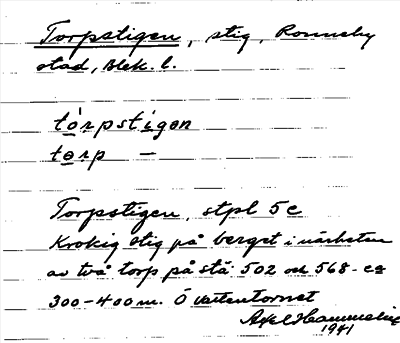 Torpstigen, stig, Ronneby
stad, Blek. l.
tórpstigen
torp —
Torpstigen, stpl 5c
Krokig stig på berget i närheten
av två torp på stä 502 och 568 - ca
300-400 m. Ö vattentornet
Axel Hammelin
1941